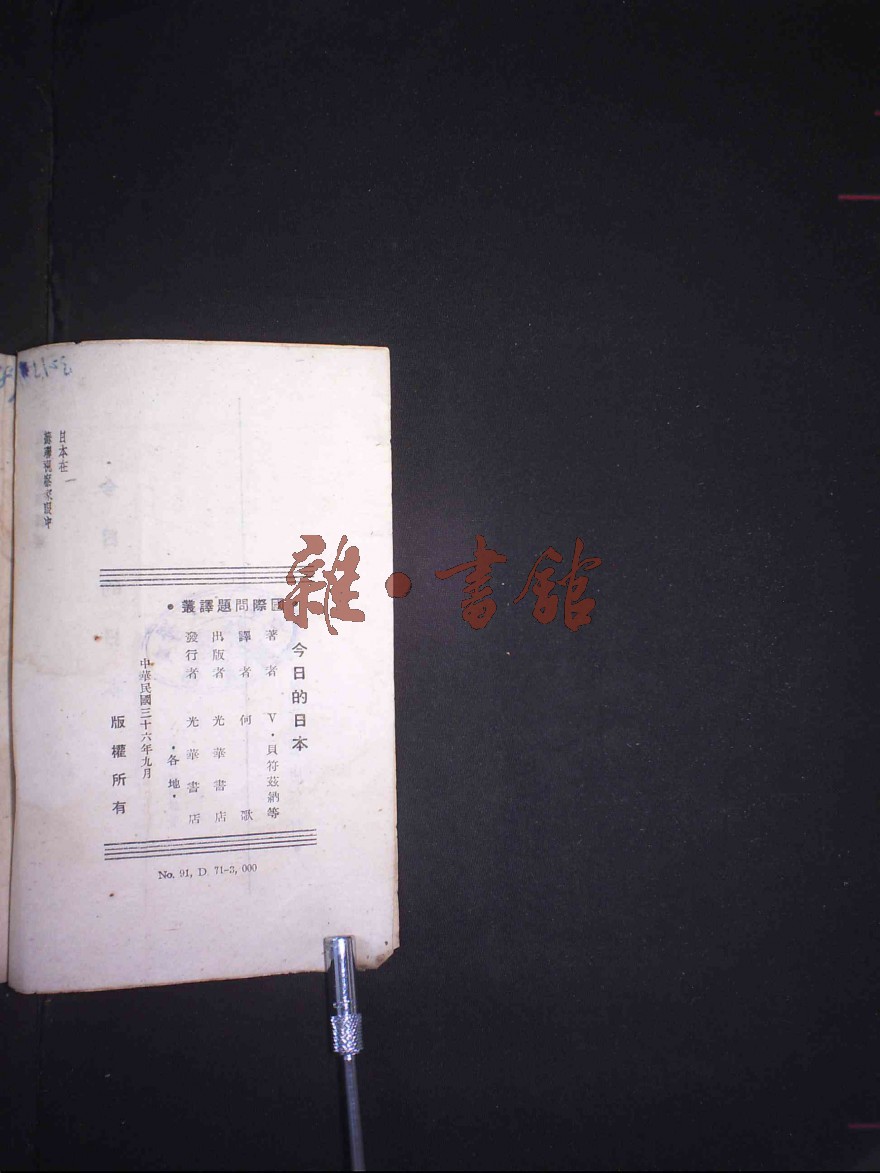 •國際問題譯叢•
今日的日本
著者 V·貝符茲納等
譯者 何歌
出版者 光華書店
發行者 光華書店
•各地•
中華民國三十六年九月
版權所有
No. 91, D. 71-3, 000
日本在
雜·書館